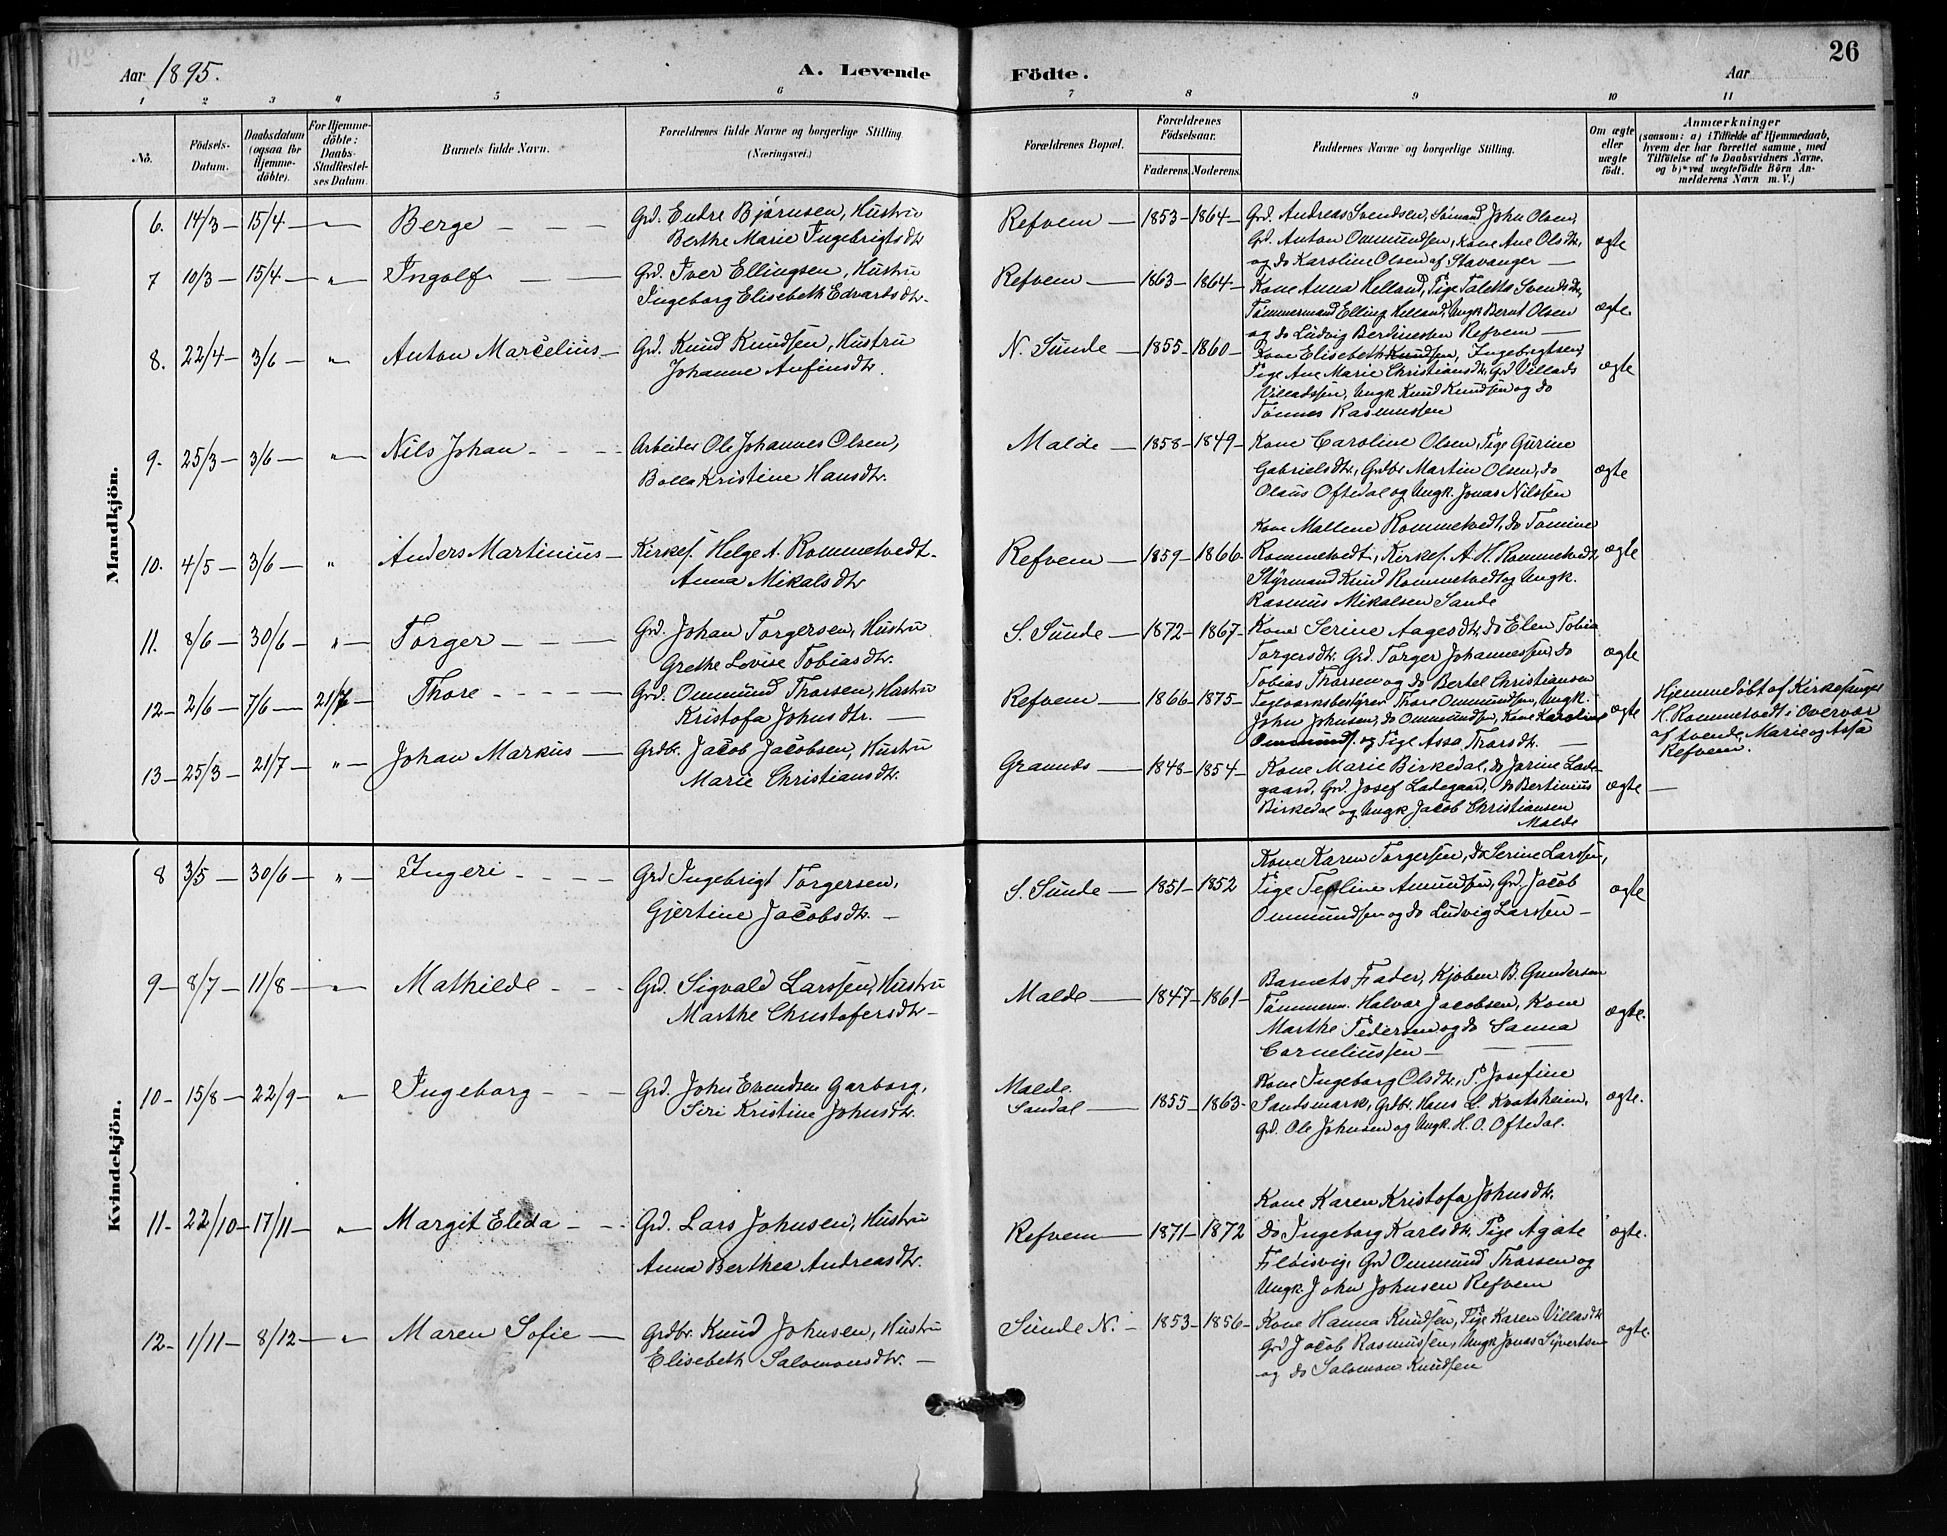 26
Aar 1895. A. Levende Födte. Aar
1 2 3 4 5 6 7 8 9 10 11
No.
Födsels-Datum.
Daabsdatum (ogsaa for Hjemme-döbte).
For Hjemme-döbte: Daabs-Stadfæstel-ses Datum.
Barnets fulde Navn.
Forældrenes fulde Navne og borgerlige Stilling (Næringsvei.)
Forældrenes Bopæl.
Forældrenes Födselsaar.
Faderens. Moderens.
Faddernes Navne og borgerlige Stilling.
Om ægte eller uægte födt.
Anmærkninger
(saasom: a) i Tilfælde af Hjemmedaab, hvem der har forrettet samme, med Tilföielse af to Daabsvidners Navne, og b) ved uægtefödte Börn An-melderens Navn m. V.)
Mandkjön.
6. 14/3 – 15/4 – " – Berge – – –
Grd. Endre Bjørnsen, Hustru
Berthe Marie Ingebrigtsdtr
Refvem – 1853 – 1864 –
Grd. Andreas Svendsen, Sömand John Olsen,
Grd. Anton Ommundsen, Kone Ane Olsdtr,
og do Karoline Olsen af Stavanger –
ægte
7 10/3 – 15/4 – " – Ingolf –
Grd. Iver Ellingsen, Hustru
Ingeborg Elisebeth Edvartsdtr.
Refvem – 1863 – 1864 –
Kone Anna Helland, Pige Taletta Svendsdtr,
Tømmermand Elling Helland, Ungk Bernt Olsen
og do Ludvig Berdinessen Refvem –
ægte.
8. 22/4 – 3/6 – " Anton Marcelius –
Grd. Knud Knudsen, Hustru
Johanne Anfinsdtr.
N. Sunde – 1855 – 1860 –
Kone Elisebeth Knudsen, Ingebrigtsen,
Pige Ane Marie Christiansdtr, Grd Villads
Villadssen, Ungk Knud Knudsen og do
Tönnes Rasmussen
ægte
9. 25/3 – 3/6 – " – Nils Johan – – –
Arbeider Ole Johannes Olsen,
Bolla Kristine Hansdtr.
Malde – 1858 – 1849 –
Kone Caroline Olsen, Pige Gurine
Gabrielsdtr, Grdbr Martin Olsen, do
Olaus Oftedal og Ungk. Jonas Nilssen
ægte
10. 4/5 – 3/6 – " Anders Martinius –
Kirkes. Helge A. Rommetvedt –
Anna Mikalsdtr
Refvem – 1859 – 1866 –
Kone Mallene Rommetvedt, do Tomine
Rommetvedt, Kirkes. A. H. Rommetvedt,
Styrmand Knud Rommetvedt og Ungk.
Rasmus Mikalsen Sande
ægte
11. 8/6 – 30/6 – " – Torger – – –
Grd. Johan Torgersen, Hustru
Grethe Lovise Tobiasdtr.
S. Sunde – 1872 – 1867 –
Kone Serine Aagesdtr, do Elen Tobia
Torgersdtr. Grd. Torger Johannessen, do
Tobias Thorsen og do Bertel Christiansen
ægte
12 – 2/6 – 7/6 – 21/7 – Thore – – – –
Grd. Ommund Thorsen, Hustru
Kristofa Johnsdtr. –
Refvem – 1866 – 1875 –
Teglværksbestyrer Thore Ommundsen, Ungk.
John Johnsen, do Ommundsen, Kone Karoline
Ommunds. og Pige Assa Thorsdtr. –
ægte
Hjemmedöbt af Kirkesanger
H. Rommetvedt i Overvær
af tvende, Marie og Assa
Refvem.
13 – 25/3 – 21/7 – " – Johan Markus –
Grdbr. Jacob Jacobsen, Hustru
Marie Christiansdtr.
Grannds – 1848 – 1854 –
Kone Marie Birkedal, do Jorine Lade-
gaard, Grd. Josef Ladegaard, do Bertinius
Birkedal og Ungk Jacob Christiansen
Malde
ægte –
Kvindekjön.
8 3/5 – 30/6 – " – Ingeri – – – –
Grd Ingebrigt Torgersen,
Gjertine Jacobsdtr. –
S. Sunde – 1851 – 1852
Kone Karen Torgersen, do Serine Larssen,
Pige Teoline Amundsen, Grd. Jacob
Ommundsen og do Ludvig Larssen –
ægte
9 – 8/7 – 11/8 – " – Mathilde – – –
Grd. Sigvald Larssen, Hustru
Marthe Christofersdtr –
Malde – 1847 – 1861 –
Barnets Fader, Kjøbm B. Gundersen
Tømmerm. Halvor Jacobsen, Kone
Marthe Pedersen og do Sanna
Corneliussen –
ægte.
10 – 15/8 – 22/9 – " – Ingeborg – – –
Grd. John Evendsen Garborg,
Siri Kristine Johnsdtr.
Malde
Sandal – 1855 – 1863 –
Kone Ingeborg Olsdtr, P. Josefine
Sandsmark, Grdbr. Hans L. Kvatsheim,
Grd. Ole Johnsen og Ungk. H. O. Oftedal.
ægte.
11 – 22/10 – 17/11 – " – Margit Elida – –
Grd. Lars Johnsen, Hustru
Anna Berthea Andreasdtr.
Refvem – 1871 – 1872
Kone Karen Kristofa Johnsdtr.
do Ingeborg Karlsdtr, Pige Agate
Flöisvig, Grd Ommund Thorsen og
Ungk. John Johnsen Refvem
ægte.
12 – 1/11 – 8/12 – " – Maren Sofie –
Grdbr. Knud Johnsen, Hustru
Elisebeth Salomonsdtr. –
Sunde N. – 1853 – 1856 –
Kone Hanna Knudsen, Pige Karen Villasdtr
Grd Jacob Rasmussen, Ungk Jonas Syvertsen
og do Salomon Knudsen
ægte.